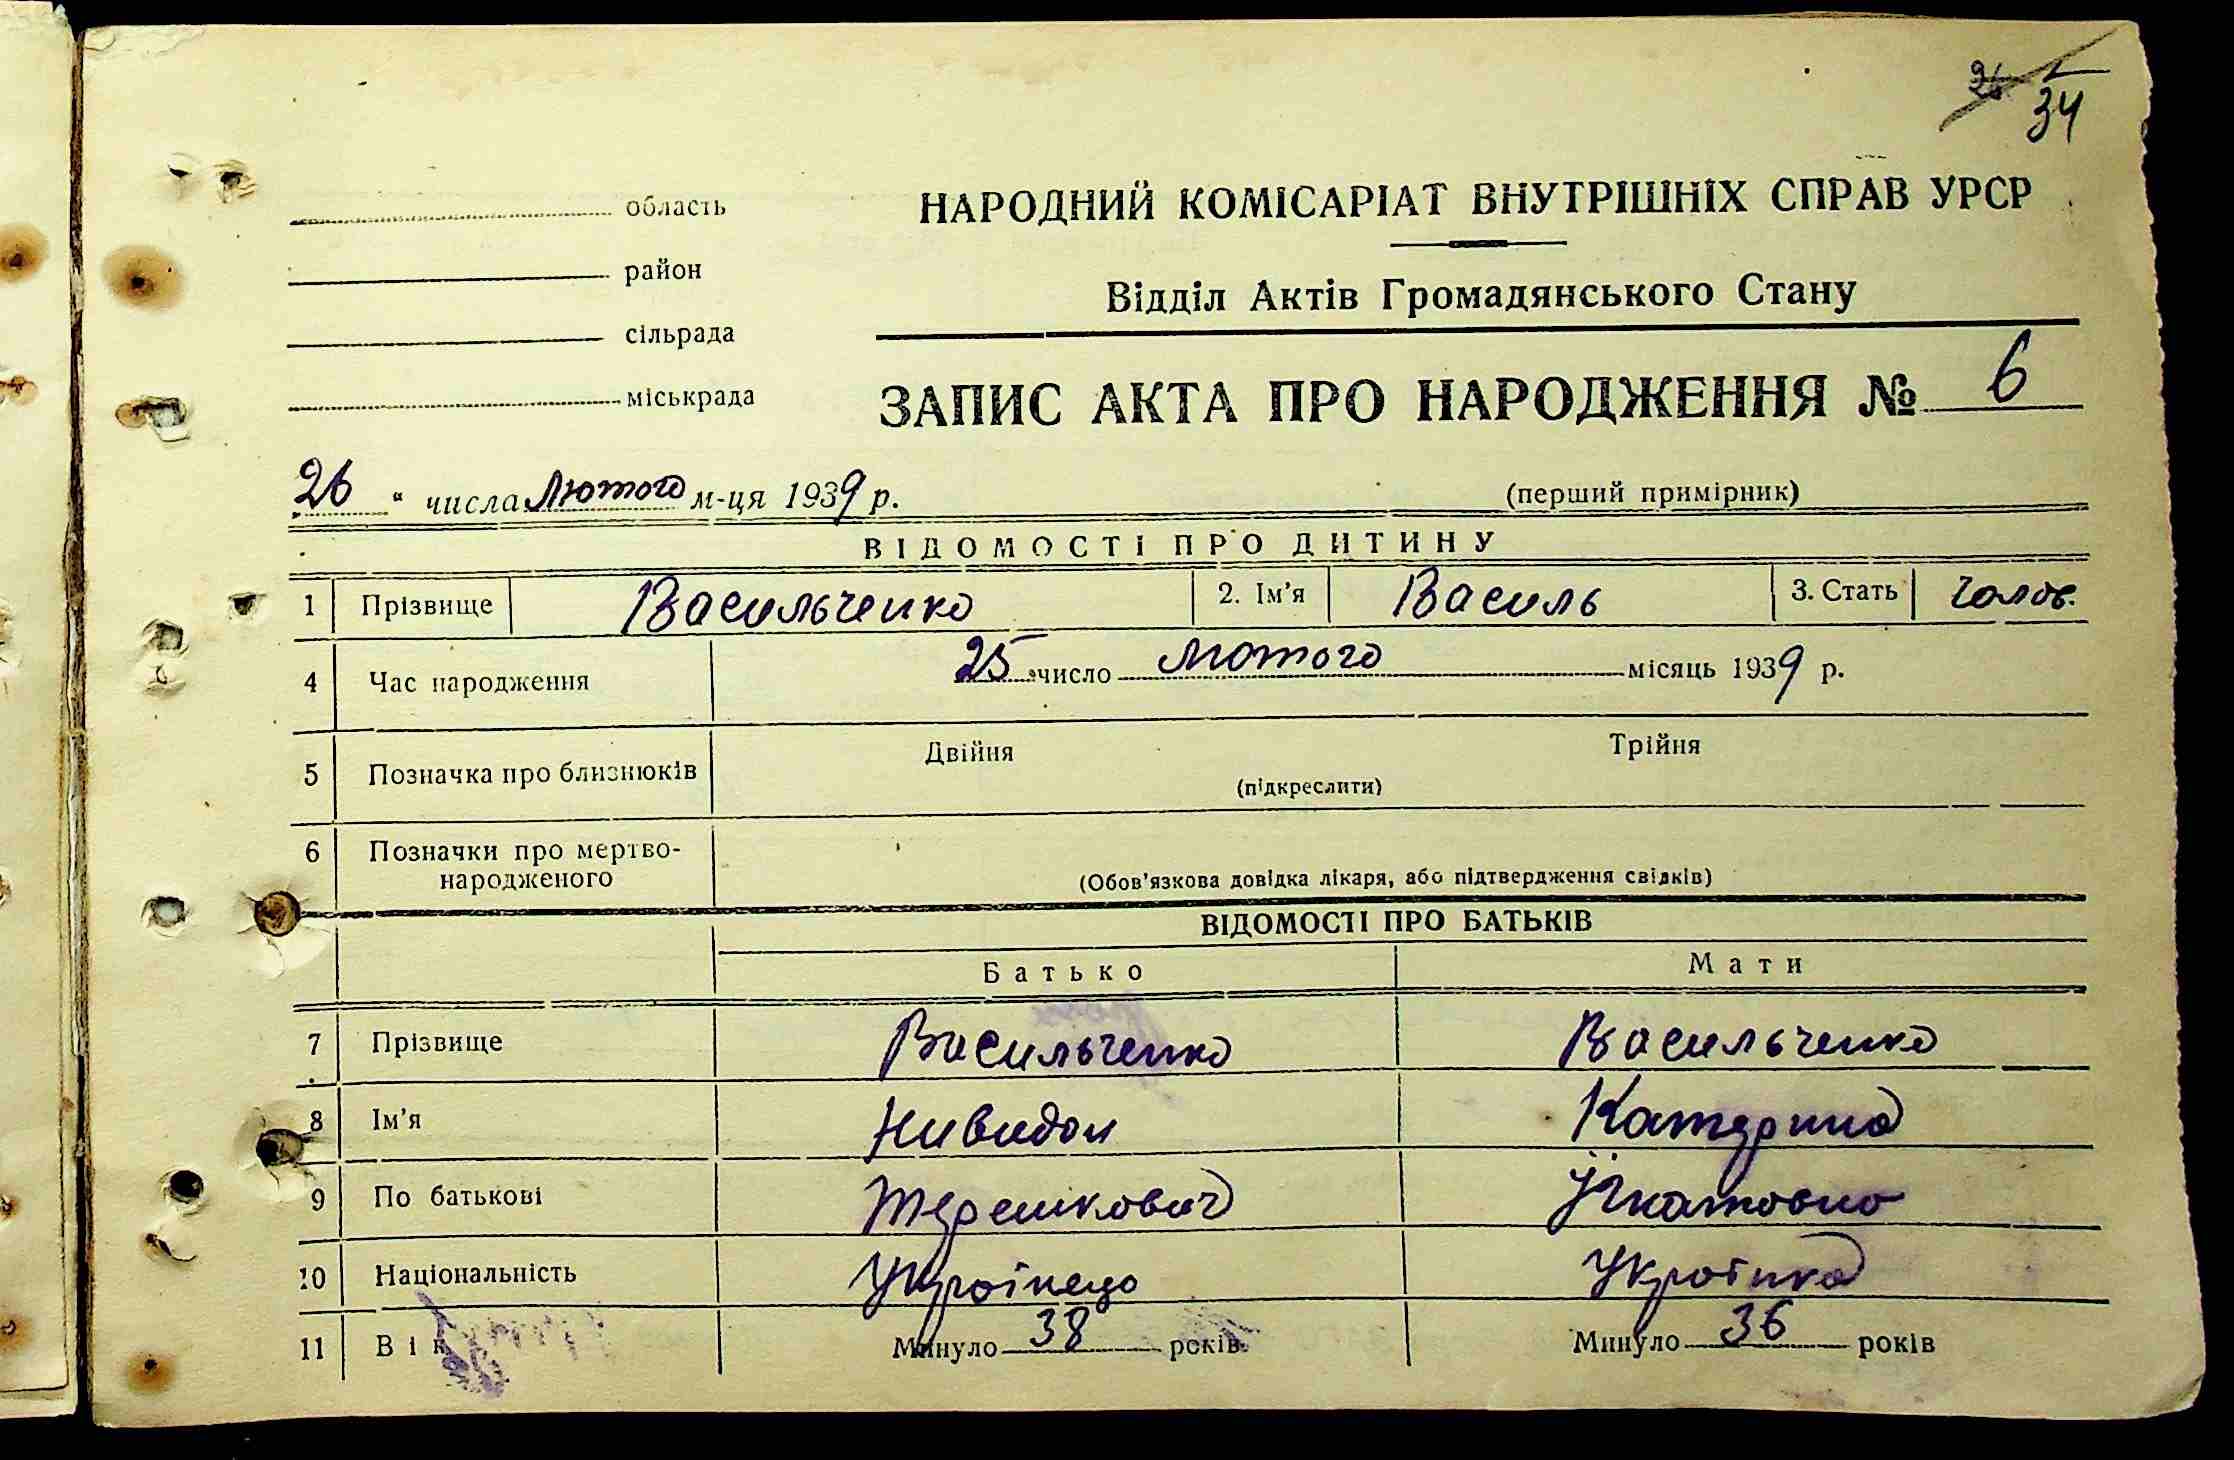 34
область
НАРОДНИЙ КОМІСАРІАТ ВНУТРІШНІХ СПРАВ УРСР
район
Відділ Актів Громадянського Стану
сільрада
міськрада
ЗАПИС АКТА ПРО НАРОДЖЕННЯ № 6
26 " числа Лютого м-ця 1939 р.
(перший примірник)
ВІДОМОСТІ ПРО ДИТИНУ
1 Прізвище Васильченко 2. Ім'я Василь 3. Стать чолов.
4 Час народження 25 число лютого місяць 1939 р.
5 Позначка про близнюків Двійня Трійня
(підкреслити)
6 Позначки про мертво-
народженого
(Обов'язкова довідка лікаря, або підтвердження свідків)
ВІДОМОСТІ ПРО БАТЬКІВ
Батько Мати
7 Прізвище Васильченко Васильченко
8 Ім'я Катерина
9 По батькові Терешкович Ігнатовна
10 Національність Українець Українка
11 Вік Минуло 38 років. Минуло 36 років